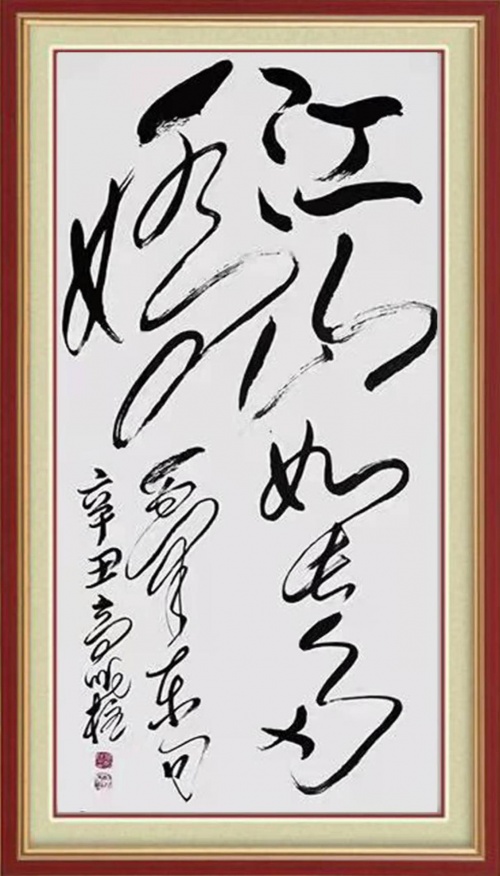 江山如此多
嬌
毛泽东句
辛丑高